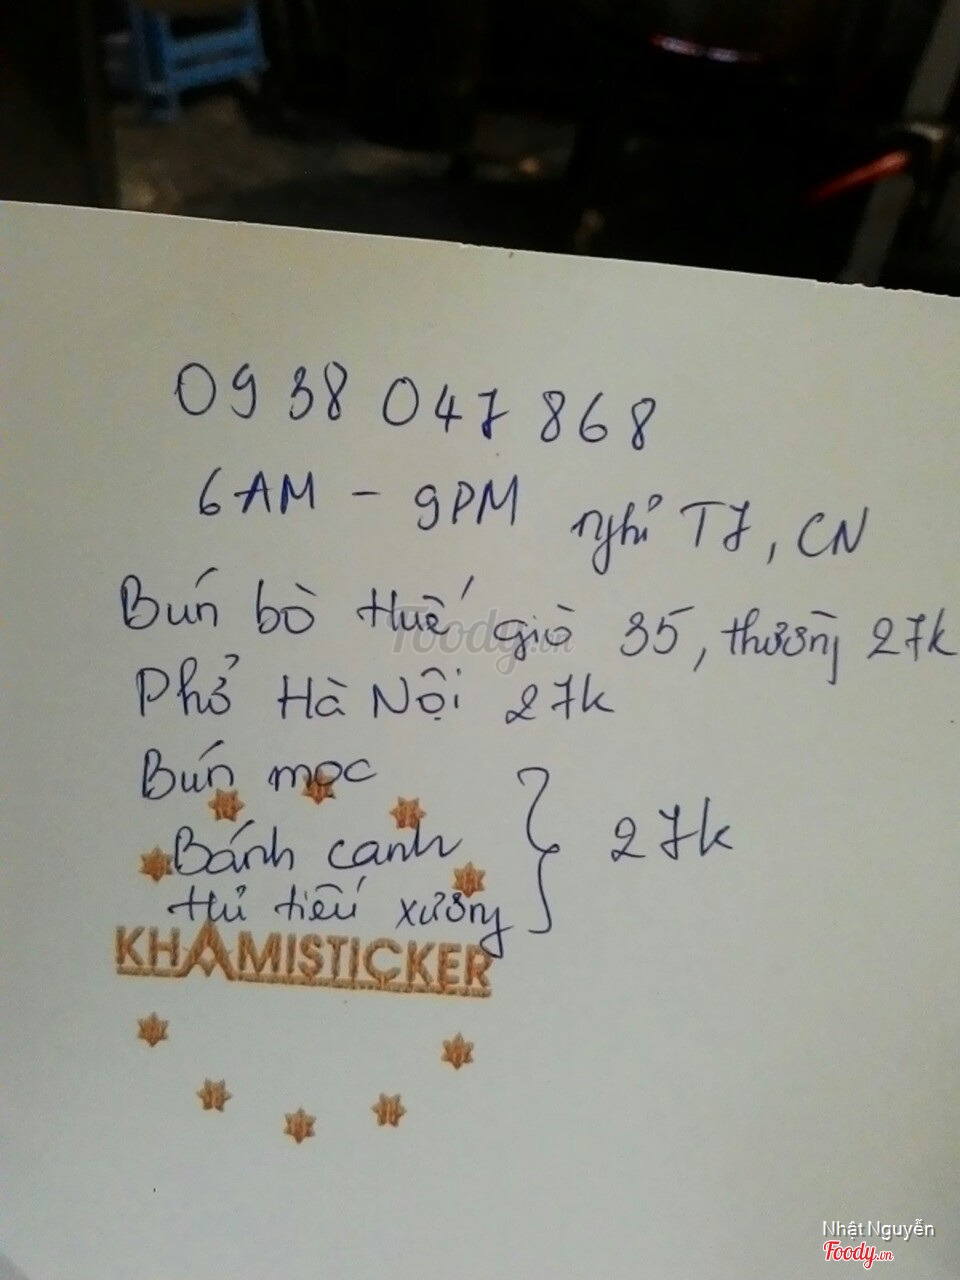 0938 047 868
6AM - 9PM nghỉ T7, CN
Bún bò Huế giò 35, thường 27k
Phở Hà Nội 27k
Bún mọc
Bánh canh
Hủ tiếu xương
27k
KHAMISTICKER
Foody.vn
Nhật Nguyễn
Foody.vn